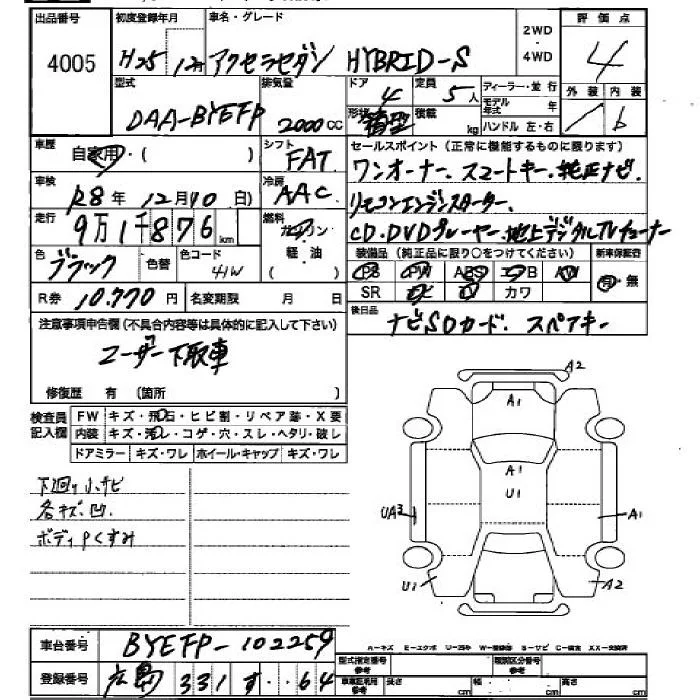 出品番号 初度登録年月 車名・グレード 2WD 評価点
4005 H25 12月 アクセラセダン HYBRID-S 4WD 4
型式 排気量 ドア 定員 ディーラー・並行 外装 内装
DAA-BYEFP 2000cc 4 5人 モデル年式 年 b
形状 箱型 積載 kg ハンドル 左・右
車歴 自家用・( ) シフト FAT セールスポイント(正常に機能するものに限ります)
ワンオーナー、スマートキー、純正ナビ、
車検 R8年12月10日) 冷房 AAC リモコンエンジンスターター、
走行 9万1千876km 燃料 ガソリン CD・DVDプレーヤー、地上デジタルTVチューナー
軽・油 装備品(純正品に限り○をつけてください) 新車保証書
色 ブラック 色替 色コード 41W PS PW ABS エアB AW 有・無
SR カワ
R券 10,770円 名変期限 月 日 後日品
注意事項申告欄(不具合内容等は具体的に記入して下さい) ナビSDカード、スペアキー
ユーザー下取車
修復歴 有 (箇所 )
検査員記入欄 FW キズ・飛石・ヒビ割・リペア跡・X要
内装 キズ・汚レ・コゲ・穴・スレ・ヘタリ・破レ
ドアミラー キズ・ワレ ホイール・キャップ キズ・ワレ
A2
A1
A1
U1
UA3 A1
U1 A2
下廻り小サビ
各キズ、凹
ボディPくすみ
車台番号 BYEFP-102259
A-キズ E-エクボ
登録番号 広島 331 す 64
型式指定番号 参考 類別区分番号 参考
車庫証明用参考 長さ cm 幅 cm 高さ cm